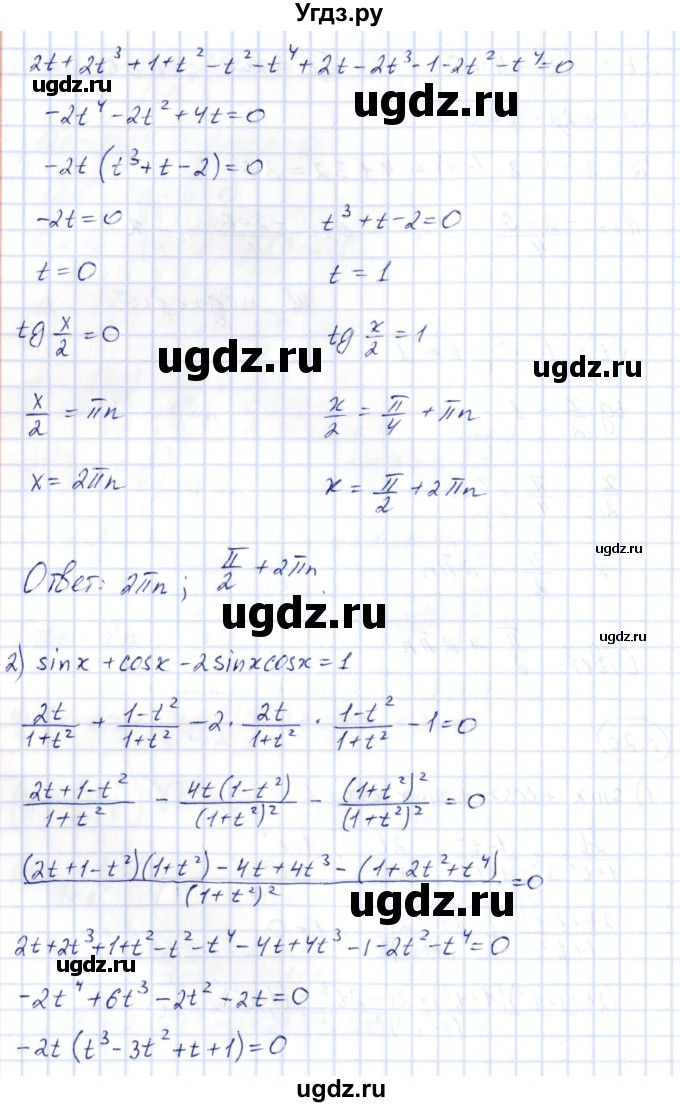 Угдз.ру
2t + 2t³ + 1 + t² - t² - t⁴ + 2t - 2t³ - 1 - 2t² - t⁴ = 0
ugdz.ru ugdz.ru
-2t⁴ - 2t² + 4t = 0
-2t (t³ + t - 2) = 0
-2t = 0 t³ + t - 2 = 0
t = 0 t = 1
tg x/2 = 0 tg x/2 = 1
ugdz.ru ugdz.ru
x/2 = πn x/2 = π/4 + πn
x = 2πn x = π/2 + 2πn
ugdz.ru
Ответ: 2πn; π/2 + 2πn.
ugdz.ru
2) sinx + cosx - 2sinxcosx = 1
2t/(1+t²) + (1-t²)/(1+t²) - 2 · 2t/(1+t²) · (1-t²)/(1+t²) - 1 = 0
(2t+1-t²)/(1+t²) - 4t(1-t²)/(1+t²)² - (1+t²)²/(1+t²)² = 0
((2t+1-t²)(1+t²) - 4t + 4t³ - (1+2t²+t⁴))/(1+t²)² = 0
ugdz.ru
2t + 2t³ + 1 + t² - t² - t⁴ - 4t + 4t³ - 1 - 2t² - t⁴ = 0
ugdz.ru
-2t⁴ + 6t³ - 2t² - 2t = 0
-2t (t³ - 3t² + t + 1) = 0
ugdz.ru